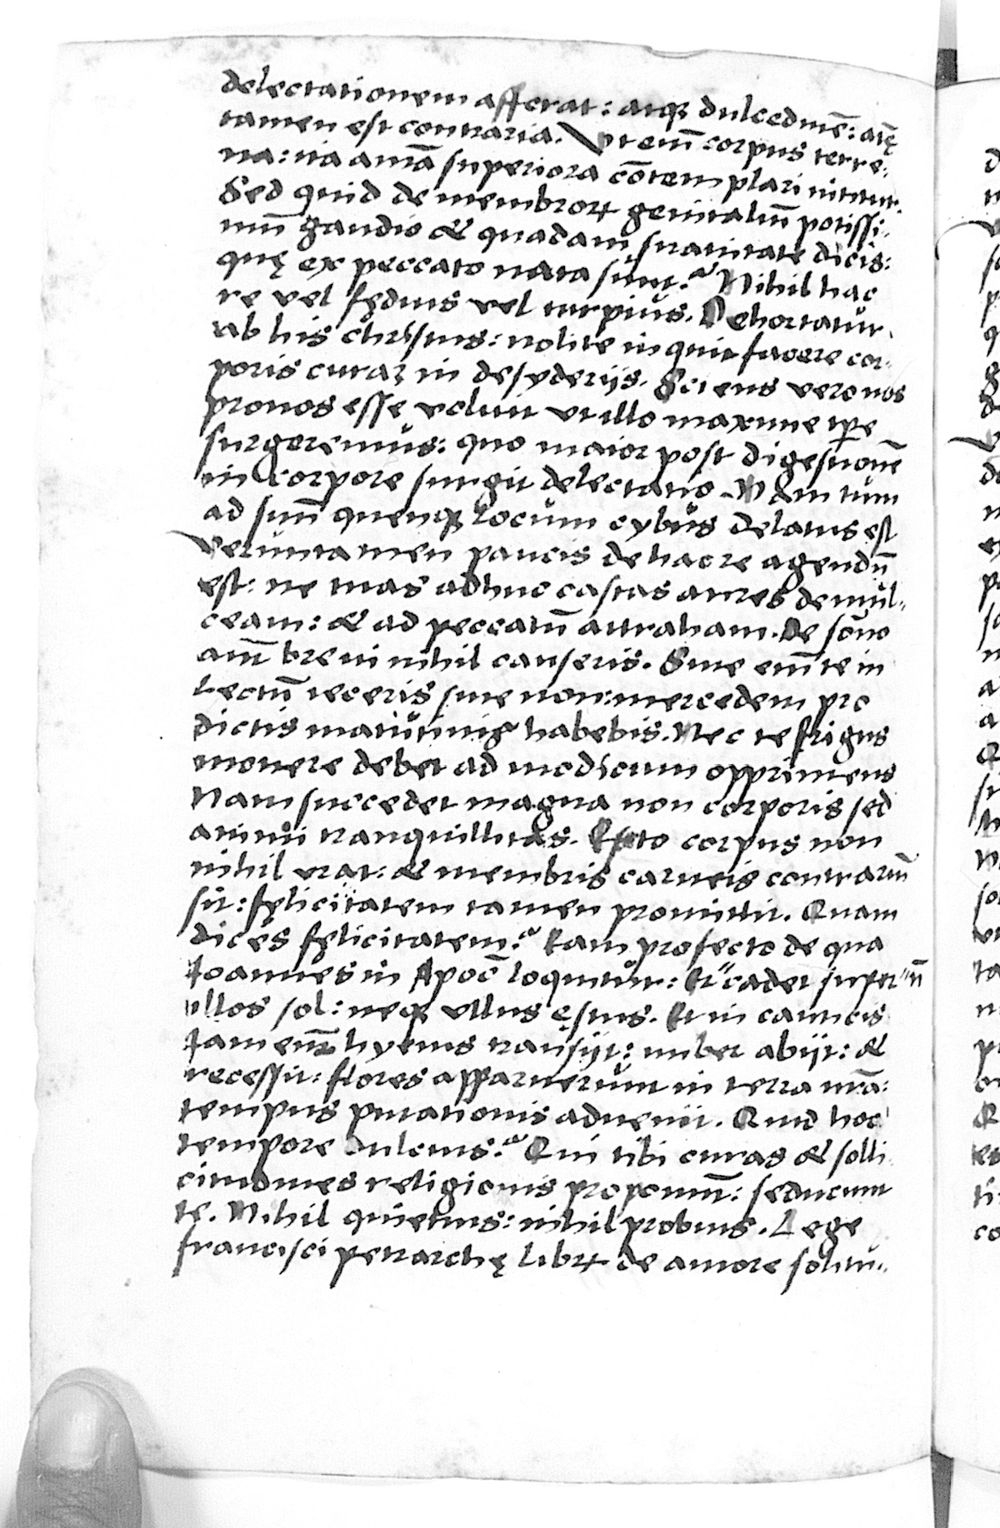 delectationem afferat: atq; dulcedinē: aīę
tamen est contraria. Vt em̄ corpus terre-
na: ita aīa superiora cōtemplari nititur.
Sed quid de membrorꝝ genitaliū potissi-
mū gaudio & quadam suauitate dicis:
quę ex peccato nata sunt? Nihil hac
re vel fędius vel turpius. Dehortatur
ab his christus: nolite inquit facere cor-
poris curaʒ in desyderijs. Sciens vero nos
pronos esse voluit vt illo maxime tp̄e
surgeremus: quo maior post digestionē
in corpore surgit delectatio. Nam tum
ad suū quenq; locum cybus delatus est
Veruntamen paucis de hac re agendū
est: ne tuas adhuc castas aures demul-
ceam: & ad peccatū attraham. De sōno
aūt breui nihil causeris. Siue em̄ te in
lectū ieceris siue non: mercedem pro
dictis matutinis habebis. Nec te frigus
mouere debet ad modicum opprimens
Nam succedet magna non corporis sed
animi tranquillitas. Esto corpus non
nihil vrat: & membris carneis contrariū
sit: felicitatem tamen promittit. Quam
dices felicitatem? Eam profecto de qua
Ioannes in Apoc̄ loquitur: Nō cadet super
illos sol: neq; vllus ęstus. Et in canticis
Iam em̄ hyems transijt: imber abijt: &
recessit: flores apparuerunt in terra nr̄a:
tempus putationis aduenit. Quid hoc
tempore dulcius? Qui tibi curas & solli
citudines religionis proponūt: seducunt
te. Nihil quietius: nihil probius. Lege
francisci petrarchę librꝝ de amore solitu-